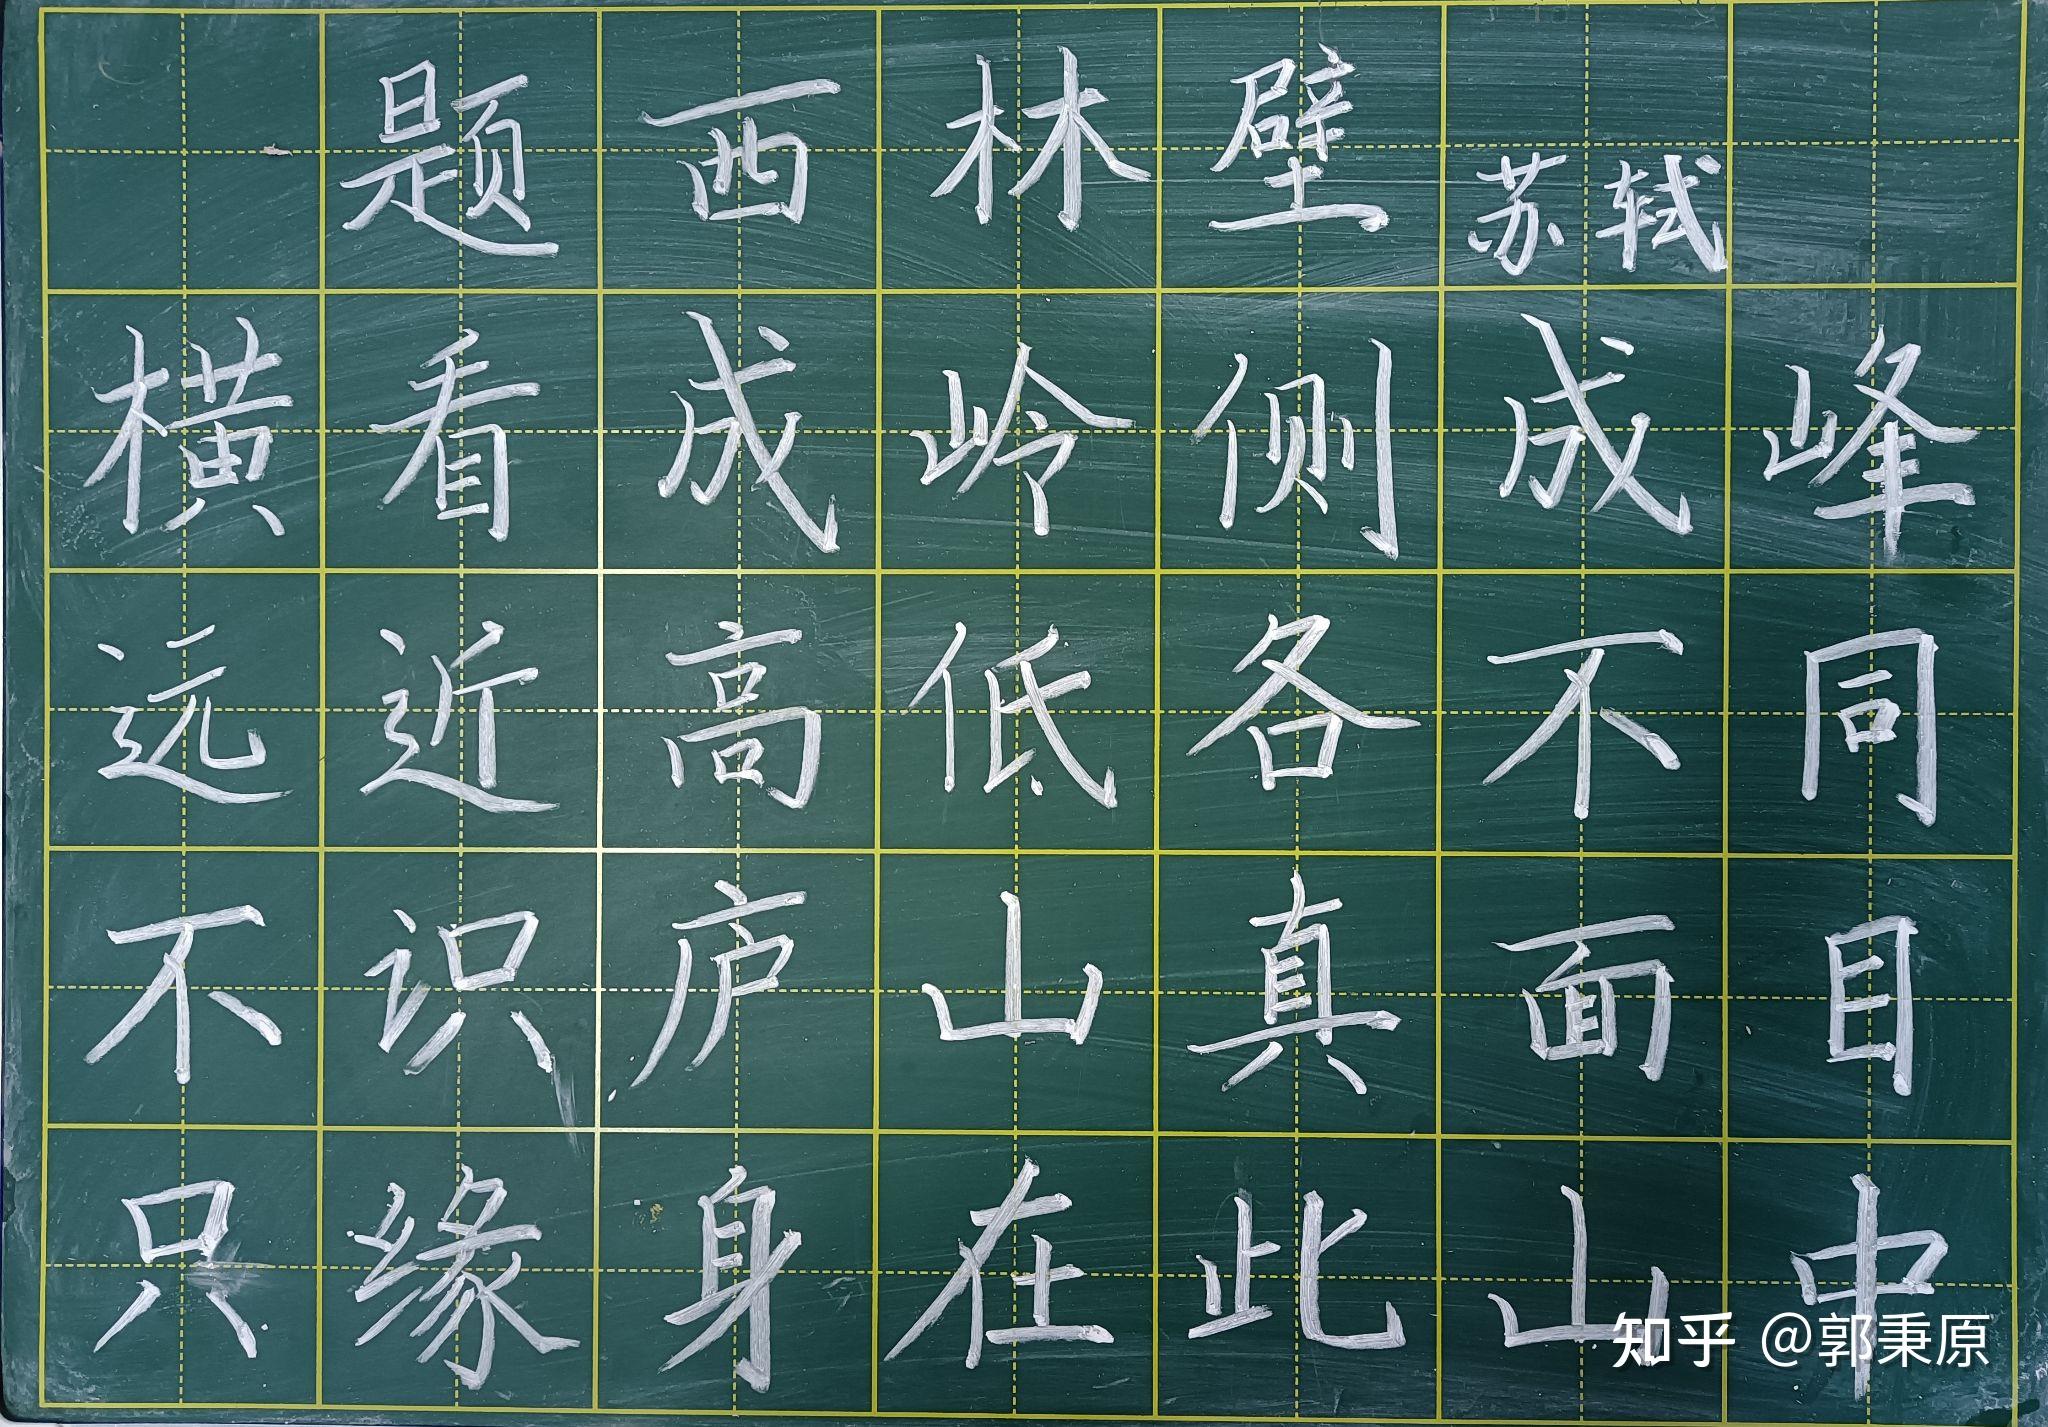 题西林壁 苏轼
横看成岭侧成峰
远近高低各不同
不识庐山真面目
只缘身在此山中
知乎 @郭秉原